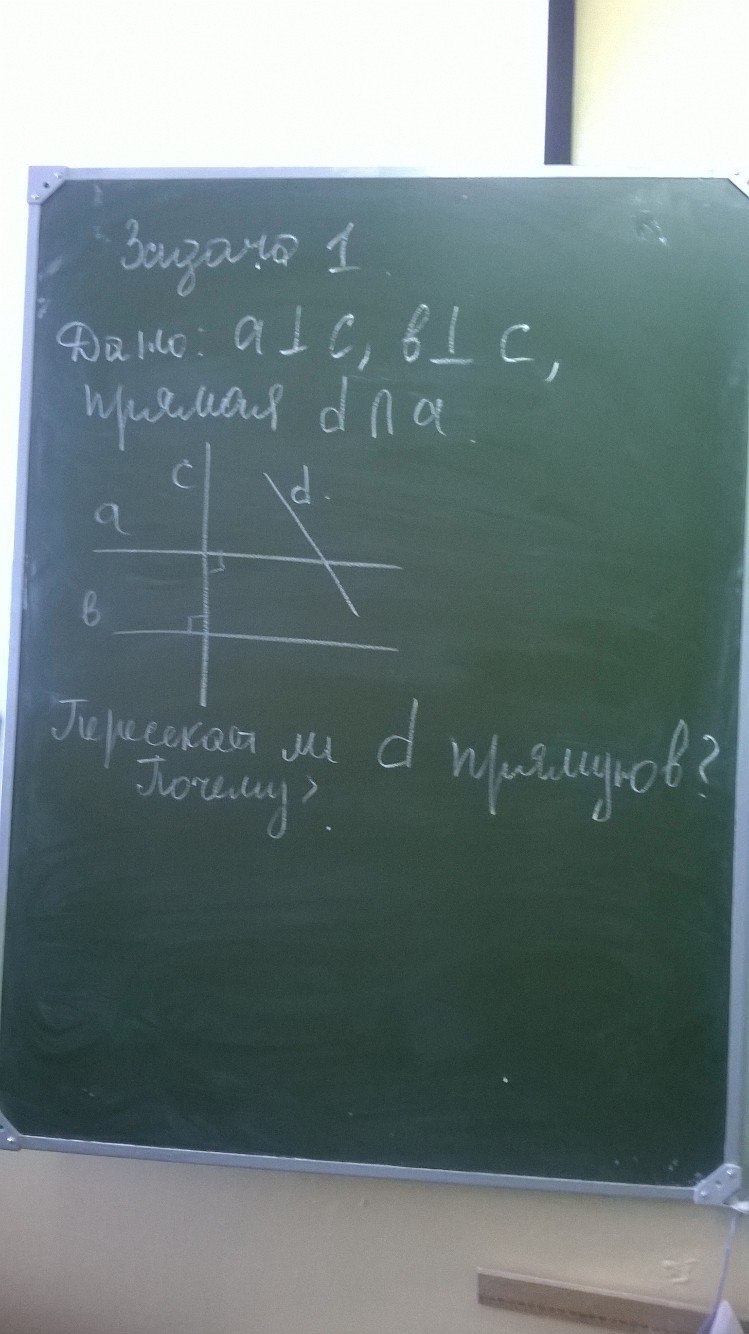 Задача 1.
Дано: a⊥c, в⊥c,
прямая d∩a.
c
d.
a
в
Пересекает ли d прямую в?
Почему?